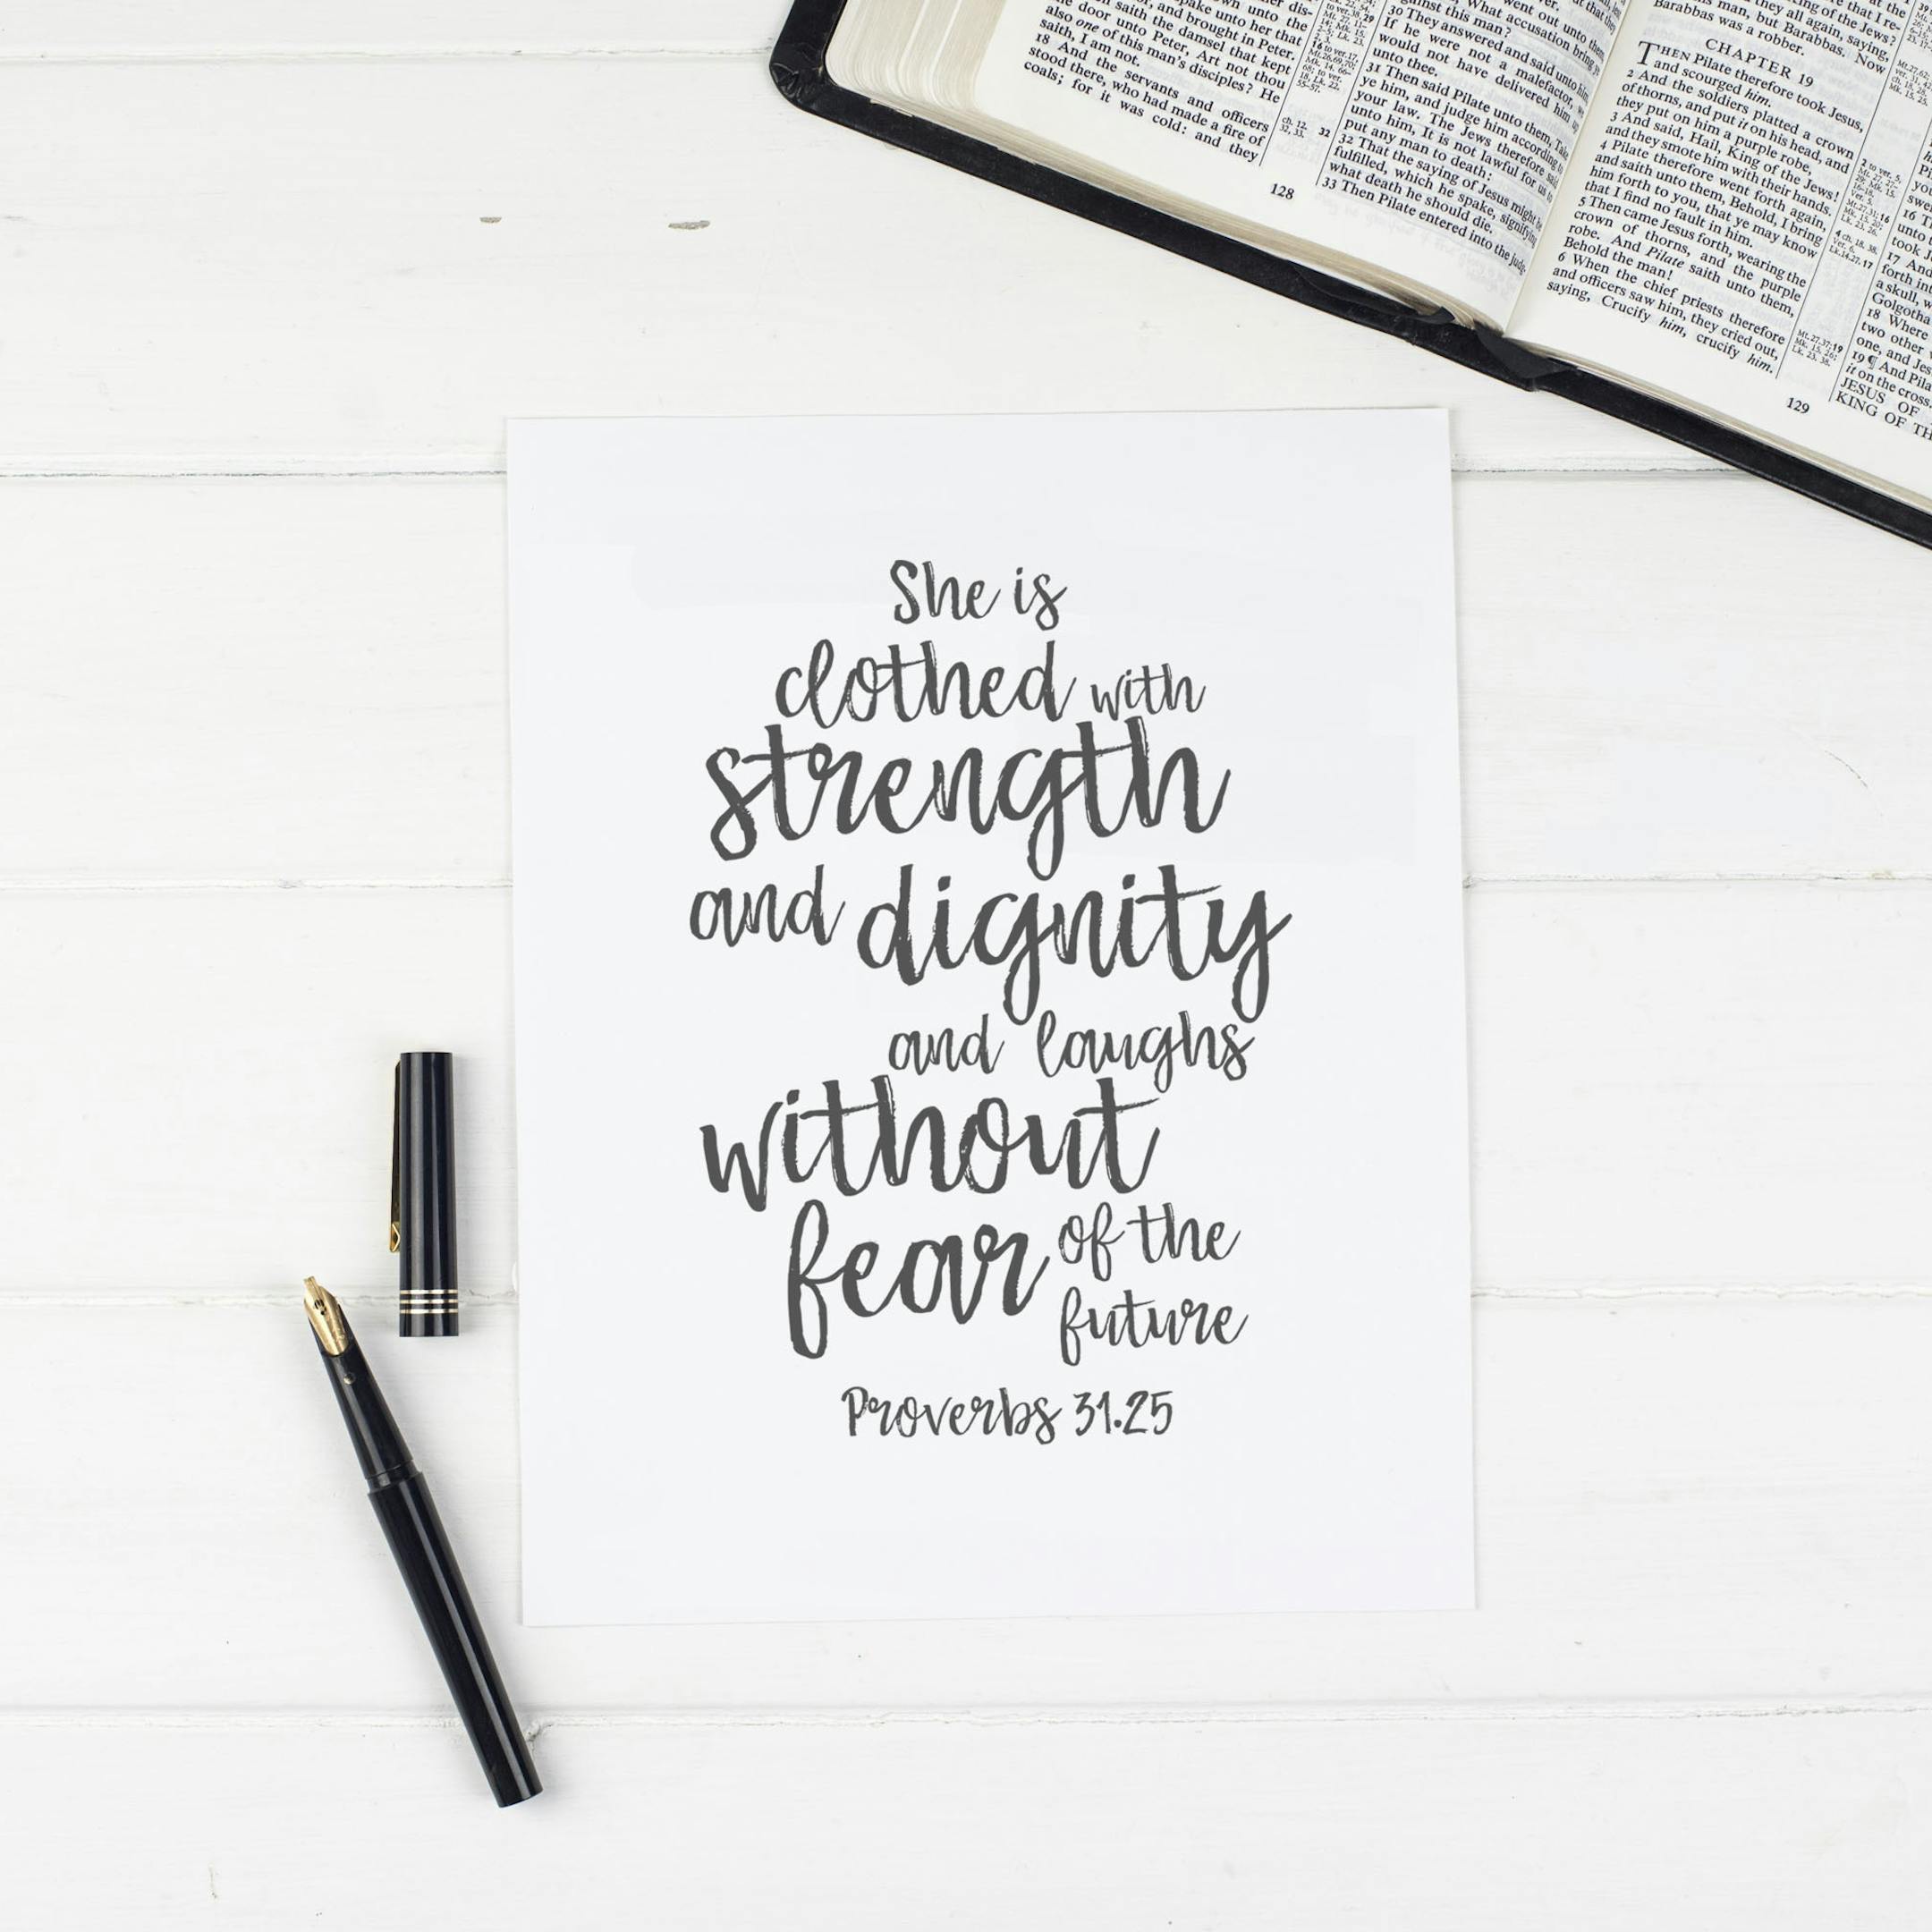 She is
clothed with
strength
and dignity
and laughs
without
fear of the
future
Proverbs 31.25
also one of this man's disciples? He
saith, I am not.
18 And the servants and officers
stood there, who had made a fire of
coals; for it was cold: and they
128
30 They answered and said unto him,
If he were not a malefactor, we
would not have delivered him up
unto thee.
31 Then said Pilate unto them, Take
ye him, and judge him according to
your law. The Jews therefore said
unto him, It is not lawful for us to
put any man to death:
32 That the saying of Jesus might be
fulfilled, which he spake, signifying
what death he should die.
33 Then Pilate entered into the judg-
Barabbas was a robber.
CHAPTER 19
THEN Pilate therefore took Jesus,
and scourged him.
2 And the soldiers platted a crown
of thorns, and put it on his head, and
they put on him a purple robe,
3 And said, Hail, King of the Jews!
and they smote him with their hands.
4 Pilate therefore went forth again,
and saith unto them, Behold, I bring
him forth to you, that ye may know
that I find no fault in him.
5 Then came Jesus forth, wearing the
crown of thorns, and the purple
robe. And Pilate saith unto them,
Behold the man!
6 When the chief priests therefore
and officers saw him, they cried out,
saying, Crucify him, crucify him.
129
18 Where
two other
one, and Jes
19 ¶ And Pila
it on the cross.
JESUS OF
KING OF TH